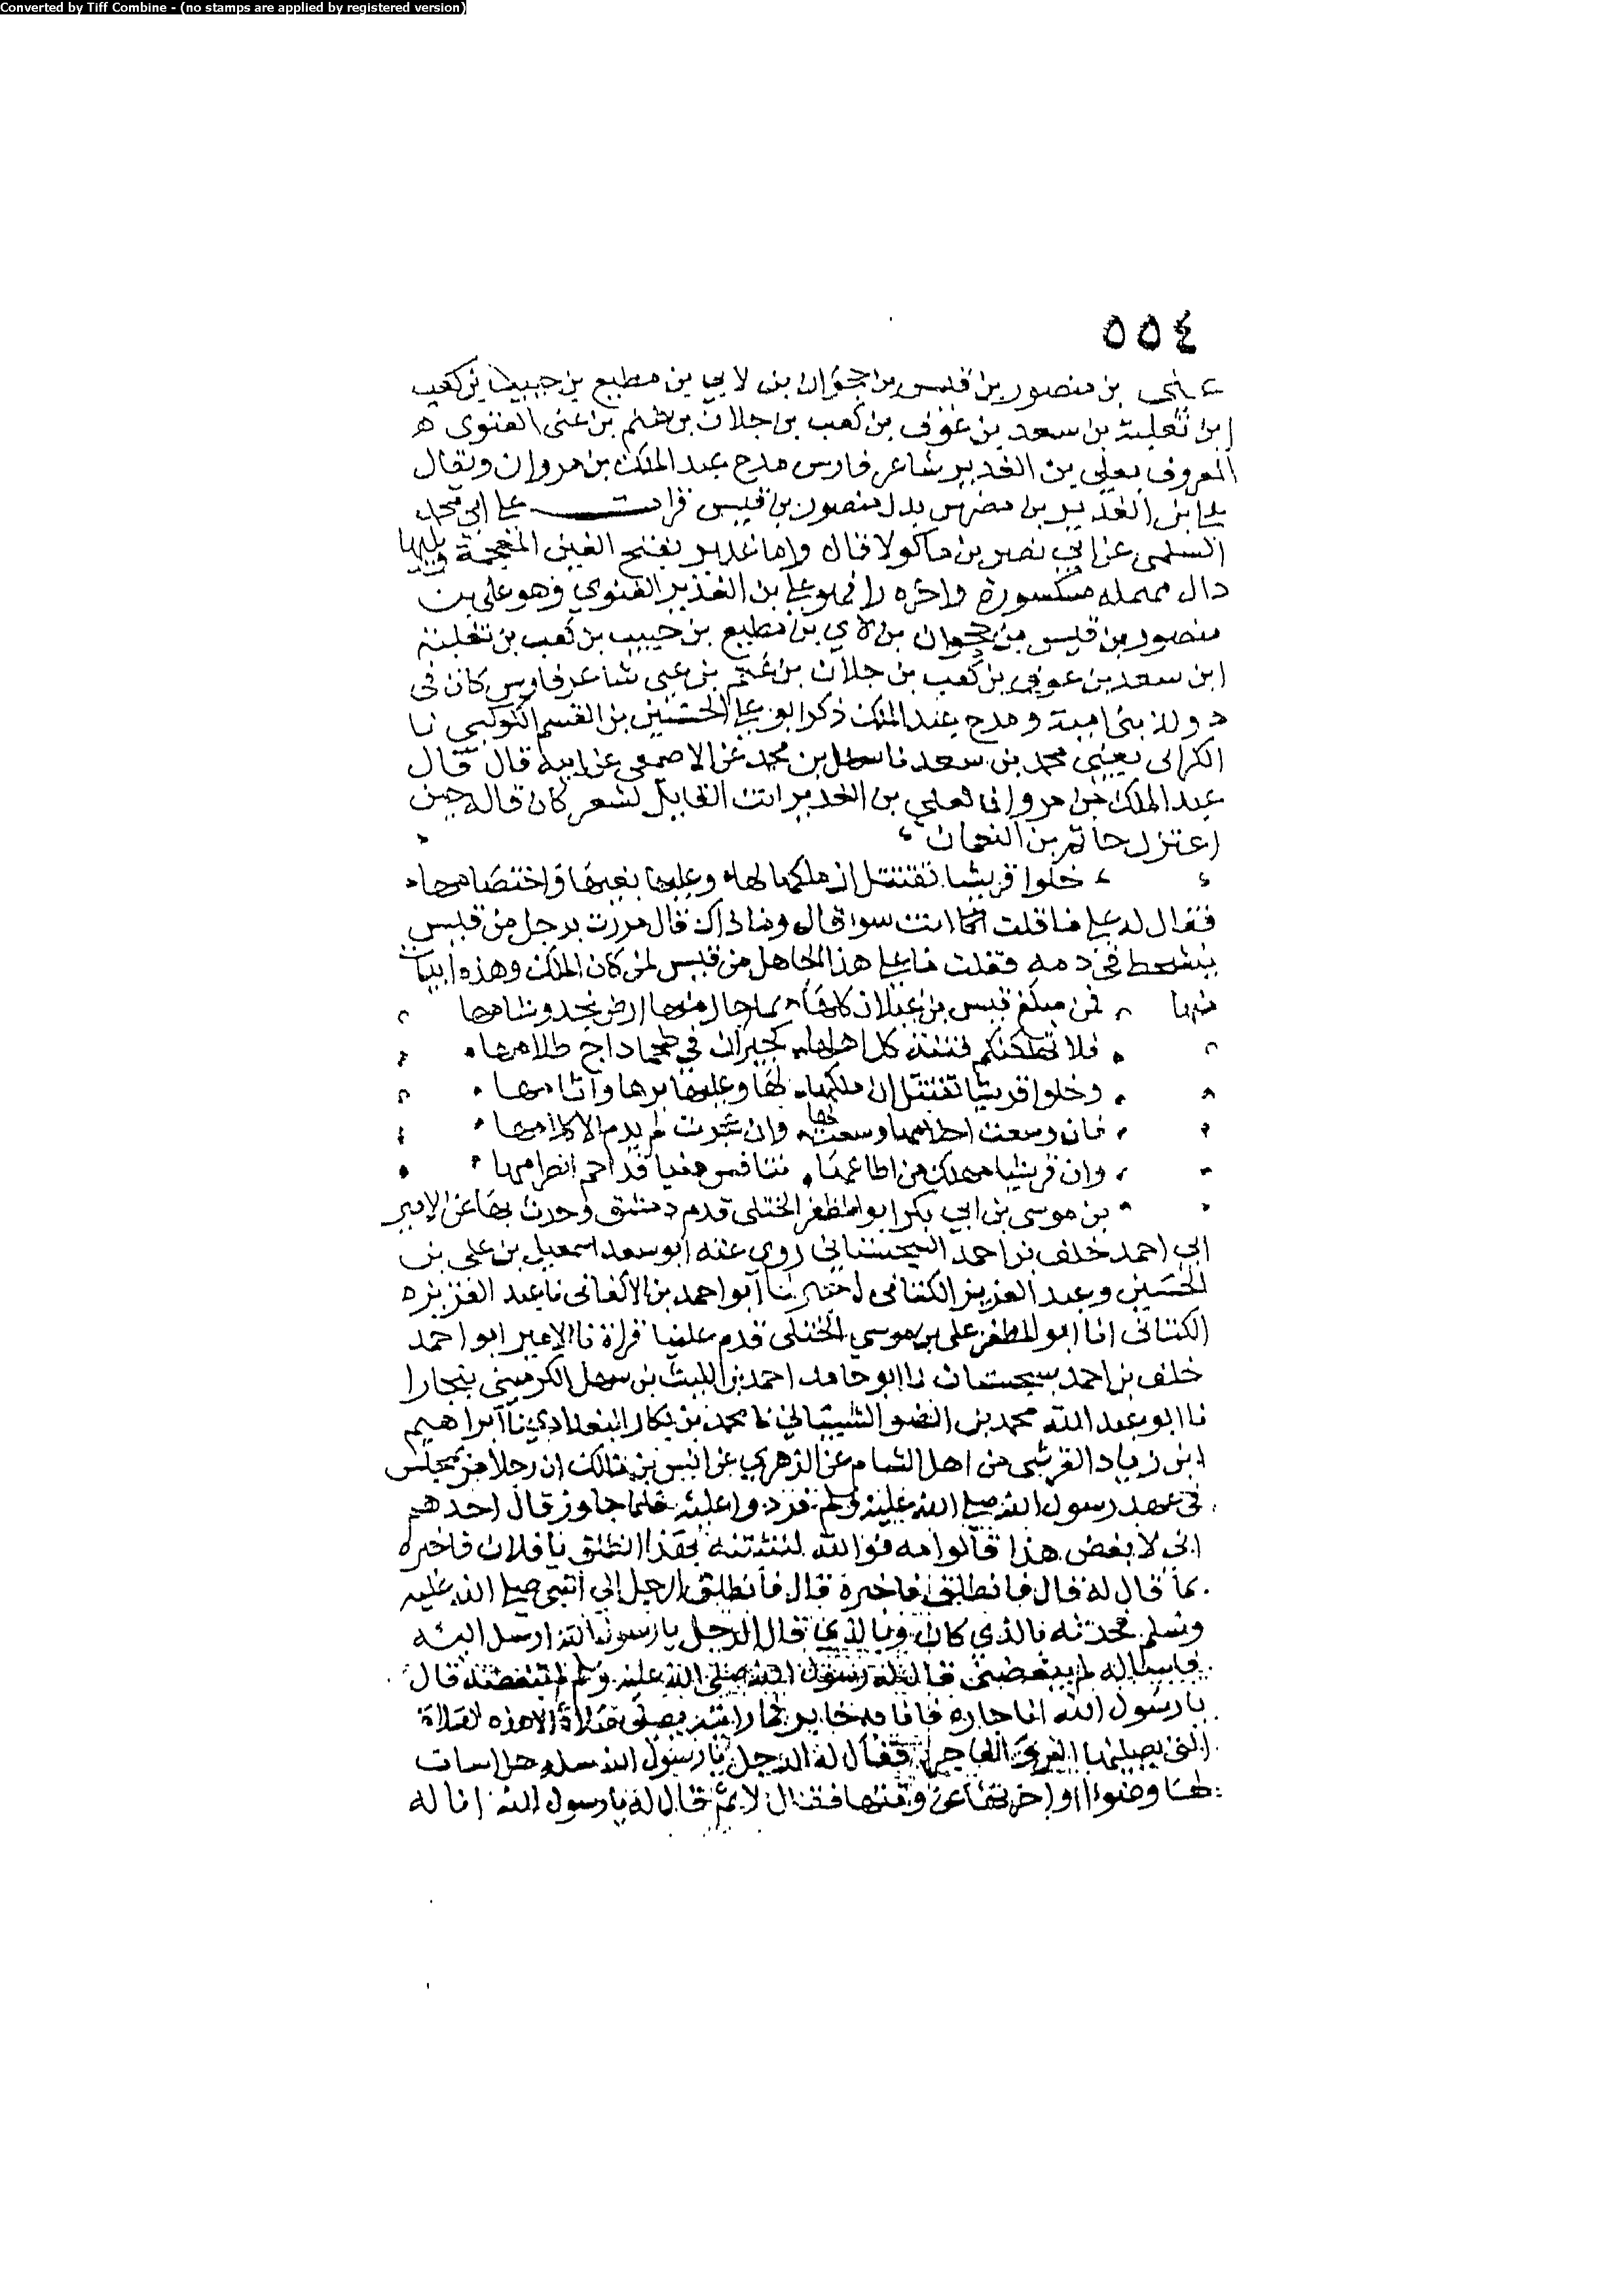 Converted by Tiff Combine - (no stamps are applied by registered version)
٥٥٤
علي بن منصور بن قيس بن حجوان بن لاي بن مطيع بن حبيب بن كعب
ابن ثعلبة بن سعد بن عوف بن كعب بن جلان بن غنم بن غنى الغنوى ه
المعروف بعلي بن الغدير شاعر فارس مدح عبد الملك بن مروان ويقال
علي بن الغدير بن مضرس بدل منصور بن قيس قرات على ابي محمد
السلمى عن ابي نصر بن ماكولا قال واما غدير بفتح الغين المعجمة ويليها
دال مهمله مكسورة واخره را فهو علي بن الغدير الغنوي وهو علي بن
منصور بن قيس بن حجوان بن لاي بن مطيع بن حبيب بن كعب بن ثعلبة
ابن سعد بن عوف بن كعب بن جلان بن غنم بن غني شاعر فارس كان في
دولة بني امية ومدح عبد الملك ذكر ابو علي الحسين بن القسم الكوكبي نا
الكراني يعني محمد بن سعد نا سهل بن محمد عن الاصمعي عن ابيه قال قال
عبد الملك بن مروان لعلي بن الغدير انت القايل لشعر كان قاله حين
اعتزل حاتم بن النعمان
خلوا قريشا تقتتل ان ملكها لها وعليها بغيها واختصامها
فقال له علي ما قلت كما انت سوا قال وما ذاك قال مررت برجل من قيس
يتشحط في دمه فقلت ما على هذا الجاهل من قيس لمن كان الملك وهذه ابيات
منها فمن مبلغ قيس بن عيلان كلها بما حال منها ارض نجد وشامها
فلا تهلكنكم فتنة كل اهلها كحيران في طخيا داج ظلامها
وخلوا قريشا تقتتل ان ملكها لها وعليها برها واثامها
فان وسعت احلامها وسعت لها وان عجزت لم يدم الا كلامها
وان قريشا مهلك من اطاعها تنافس دنيا قد احم انصرامها
بن موسى بن ابي بكر ابو المظفر الختلى قدم دمشق وحدث بها عن الامير
ابي احمد خلف بن احمد السجستاني روى عنه ابو سعد اسمعيل بن علي بن
الحسين وعبد العزيز الكتاني اخبرنا ابو احمد بن الاكفاني نا عبد العزيز ه
الكتاني انا ابو المظفر علي بن موسي الختلى قدم علينا قراة نا الامير ابو احمد
خلف بن احمد بسجستان نا ابو حامد احمد بن الليث بن سهل الكرميني ببخارا
نا ابو عبد الله محمد بن الضو الشيباني نا محمد بن بكار البغدادي نا ابراهيم
ابن زياد القرشي من اهل الشام عن الزهري عن انس بن مالك ان رجلا مر بمجلس
في عهد رسول الله صلى الله عليه وسلم فردوا عليه فلما جاوز قال احدهم
اني لابغض هذا قالوا مه فوالله لننبئنه بهذا انطلق يا فلان فاخبره
بما قال له قال فانطلق فاخبره قال فانطلق الرجل الى النبي صلى الله عليه
وسلم فحدثه بالذي كان وبالذي قال الرجل يا رسول الله ارسل اليه
فاساله لم يبغضني قال له رسول الله صلى الله عليه وسلم لم تبغضه قال
يا رسول الله انا جاره فانا به خابر ما رايته يصلي صلاة الا هذه الصلاة
التي يصليها البر والفاجر فقال له الرجل يا رسول الله سله هل اسات
لها وضوءا او اخرتها عن وقتها فقال لا ثم قال له يا رسول الله انا له